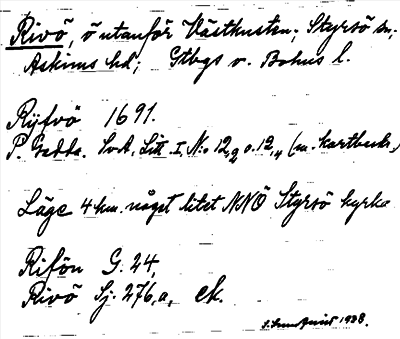 Rivö, ö utanför Västkusten; Styrsö sn;
Askims hd; Gtbgs o. Bohus l.
Ryfvö 1691.
P. Gedda. SvA, Litt. I, N:o 12,2 o. 12,4 (m. kartbeskr.)
Läge 4 km. något litet NNÖ Styrsö kyrka
Rifön G. 24,
Rivö Sj. 276,a, ek.
1928.